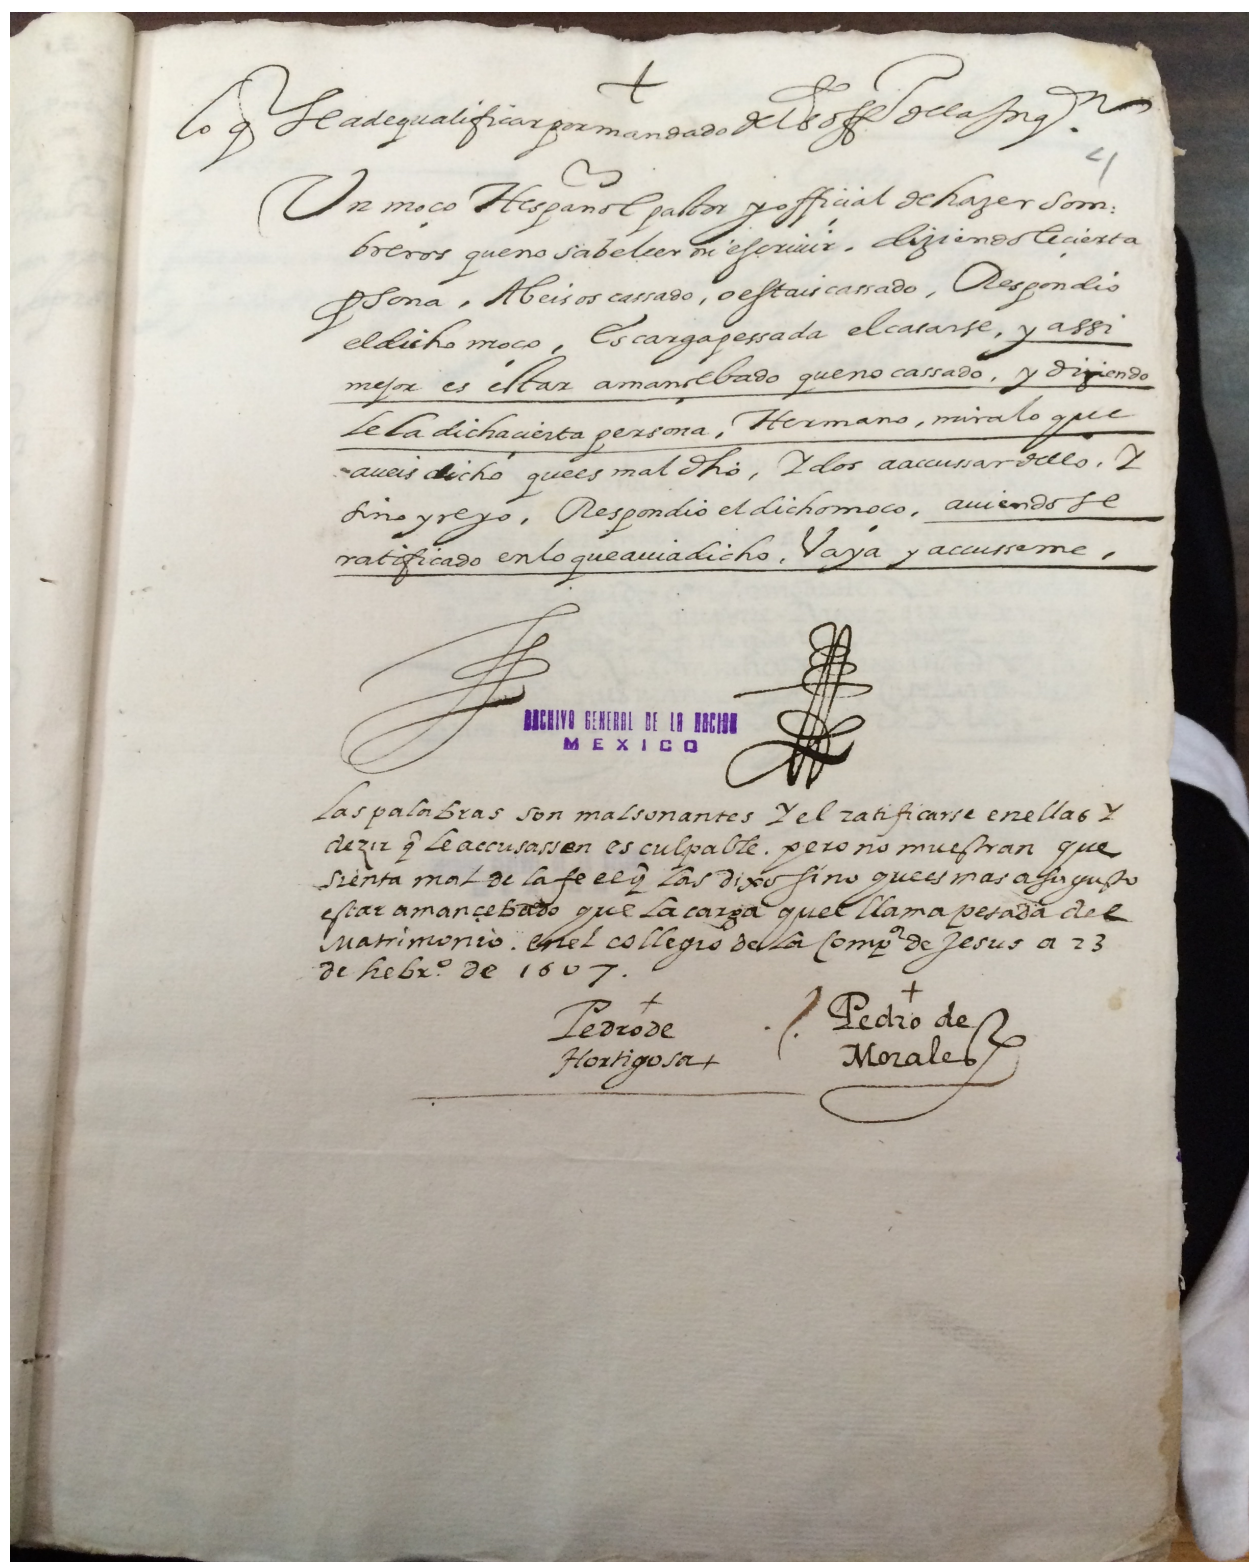 +
lo q̃ Se a de qualificar por mandado del sto offo de la Inqon
4
Un moço Hespañol pastor y official de hazer som:
breros que no sabe leer ni escriuir. diziendole cierta
psona, Abeis os cassado, o estais cassado, Respondio
el dicho moço, Es carga pessada el casarse, y assi
mejor es estar amançebado que no cassado, y diziendo
le la dicha cierta persona, Hermano, mira lo que
aueis dicho que es mal dho, Y dos a accussar dello, Y
sino yre yo, Respondio el dicho moço, auiendo se
ratificado en lo que auia dicho, Vaya y accusseme,
ARCHIVO GENERAL DE LA NACION
MEXICO
Las palabras son malsonantes Y el ratificarse en ellas Y
dezir q̃ le accusassen es culpable. pero no muestran que
sienta mal de la fee el q̃ las dixo sino que es mas a su gusto
estar amançebado que la carga que el llama pesada del
Matrimonio. en el collegio de la Compa de Jesus a 23
de hebro de 1607.
+ +
Pedro de Pedro de
Hortigosa + Morales